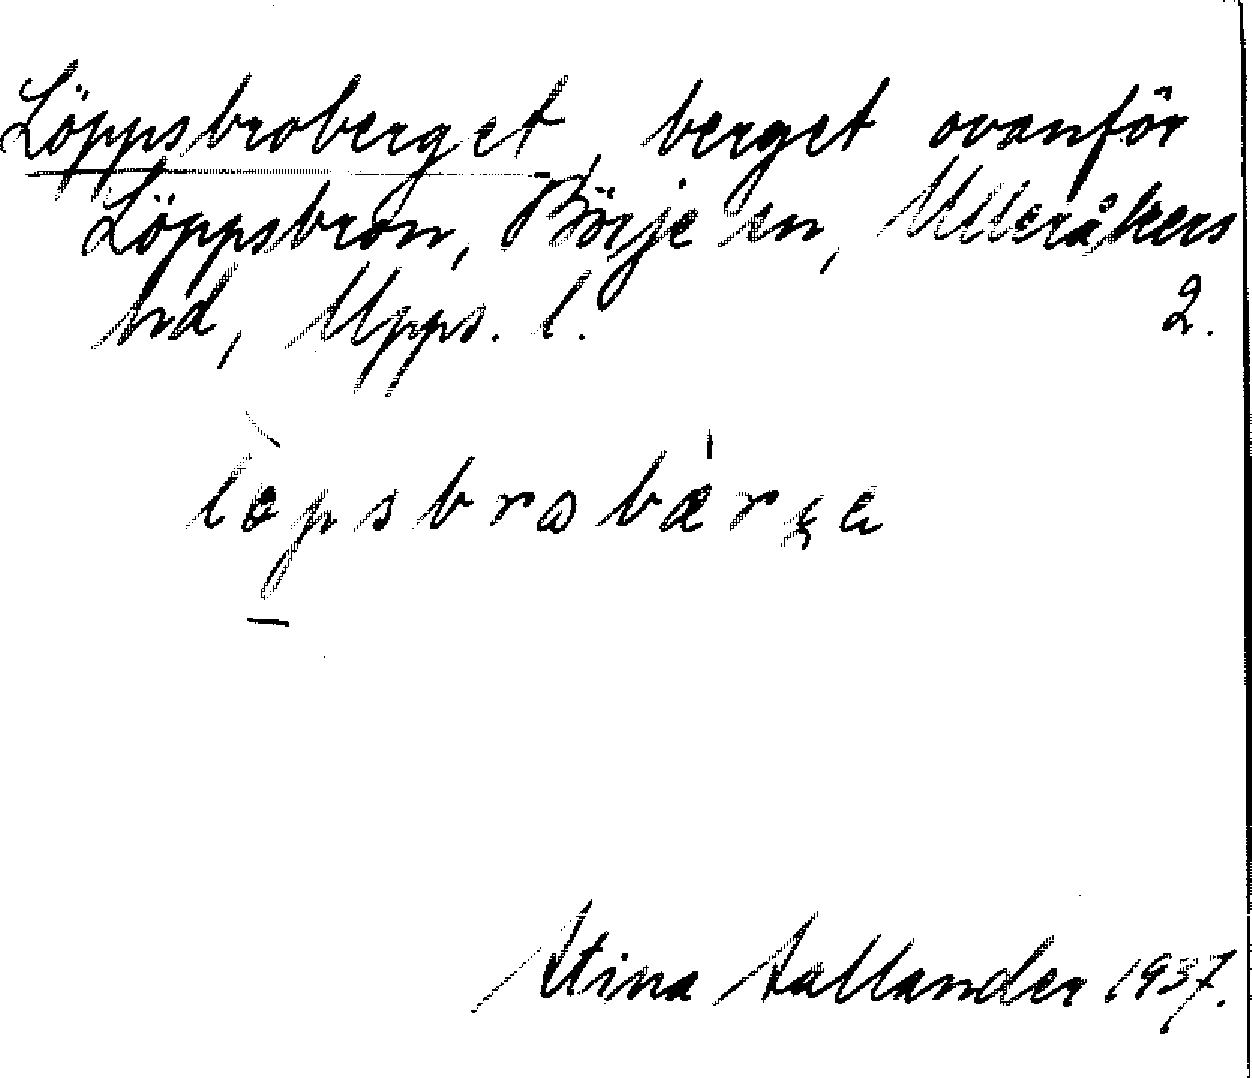 Löppsbroberget, berget ovanför
Löppsbron, Börje sn, Ulleråkers
hd, Upps. l. 2.
lɵpsbrobærgɛ
Stina Sallander 1937.